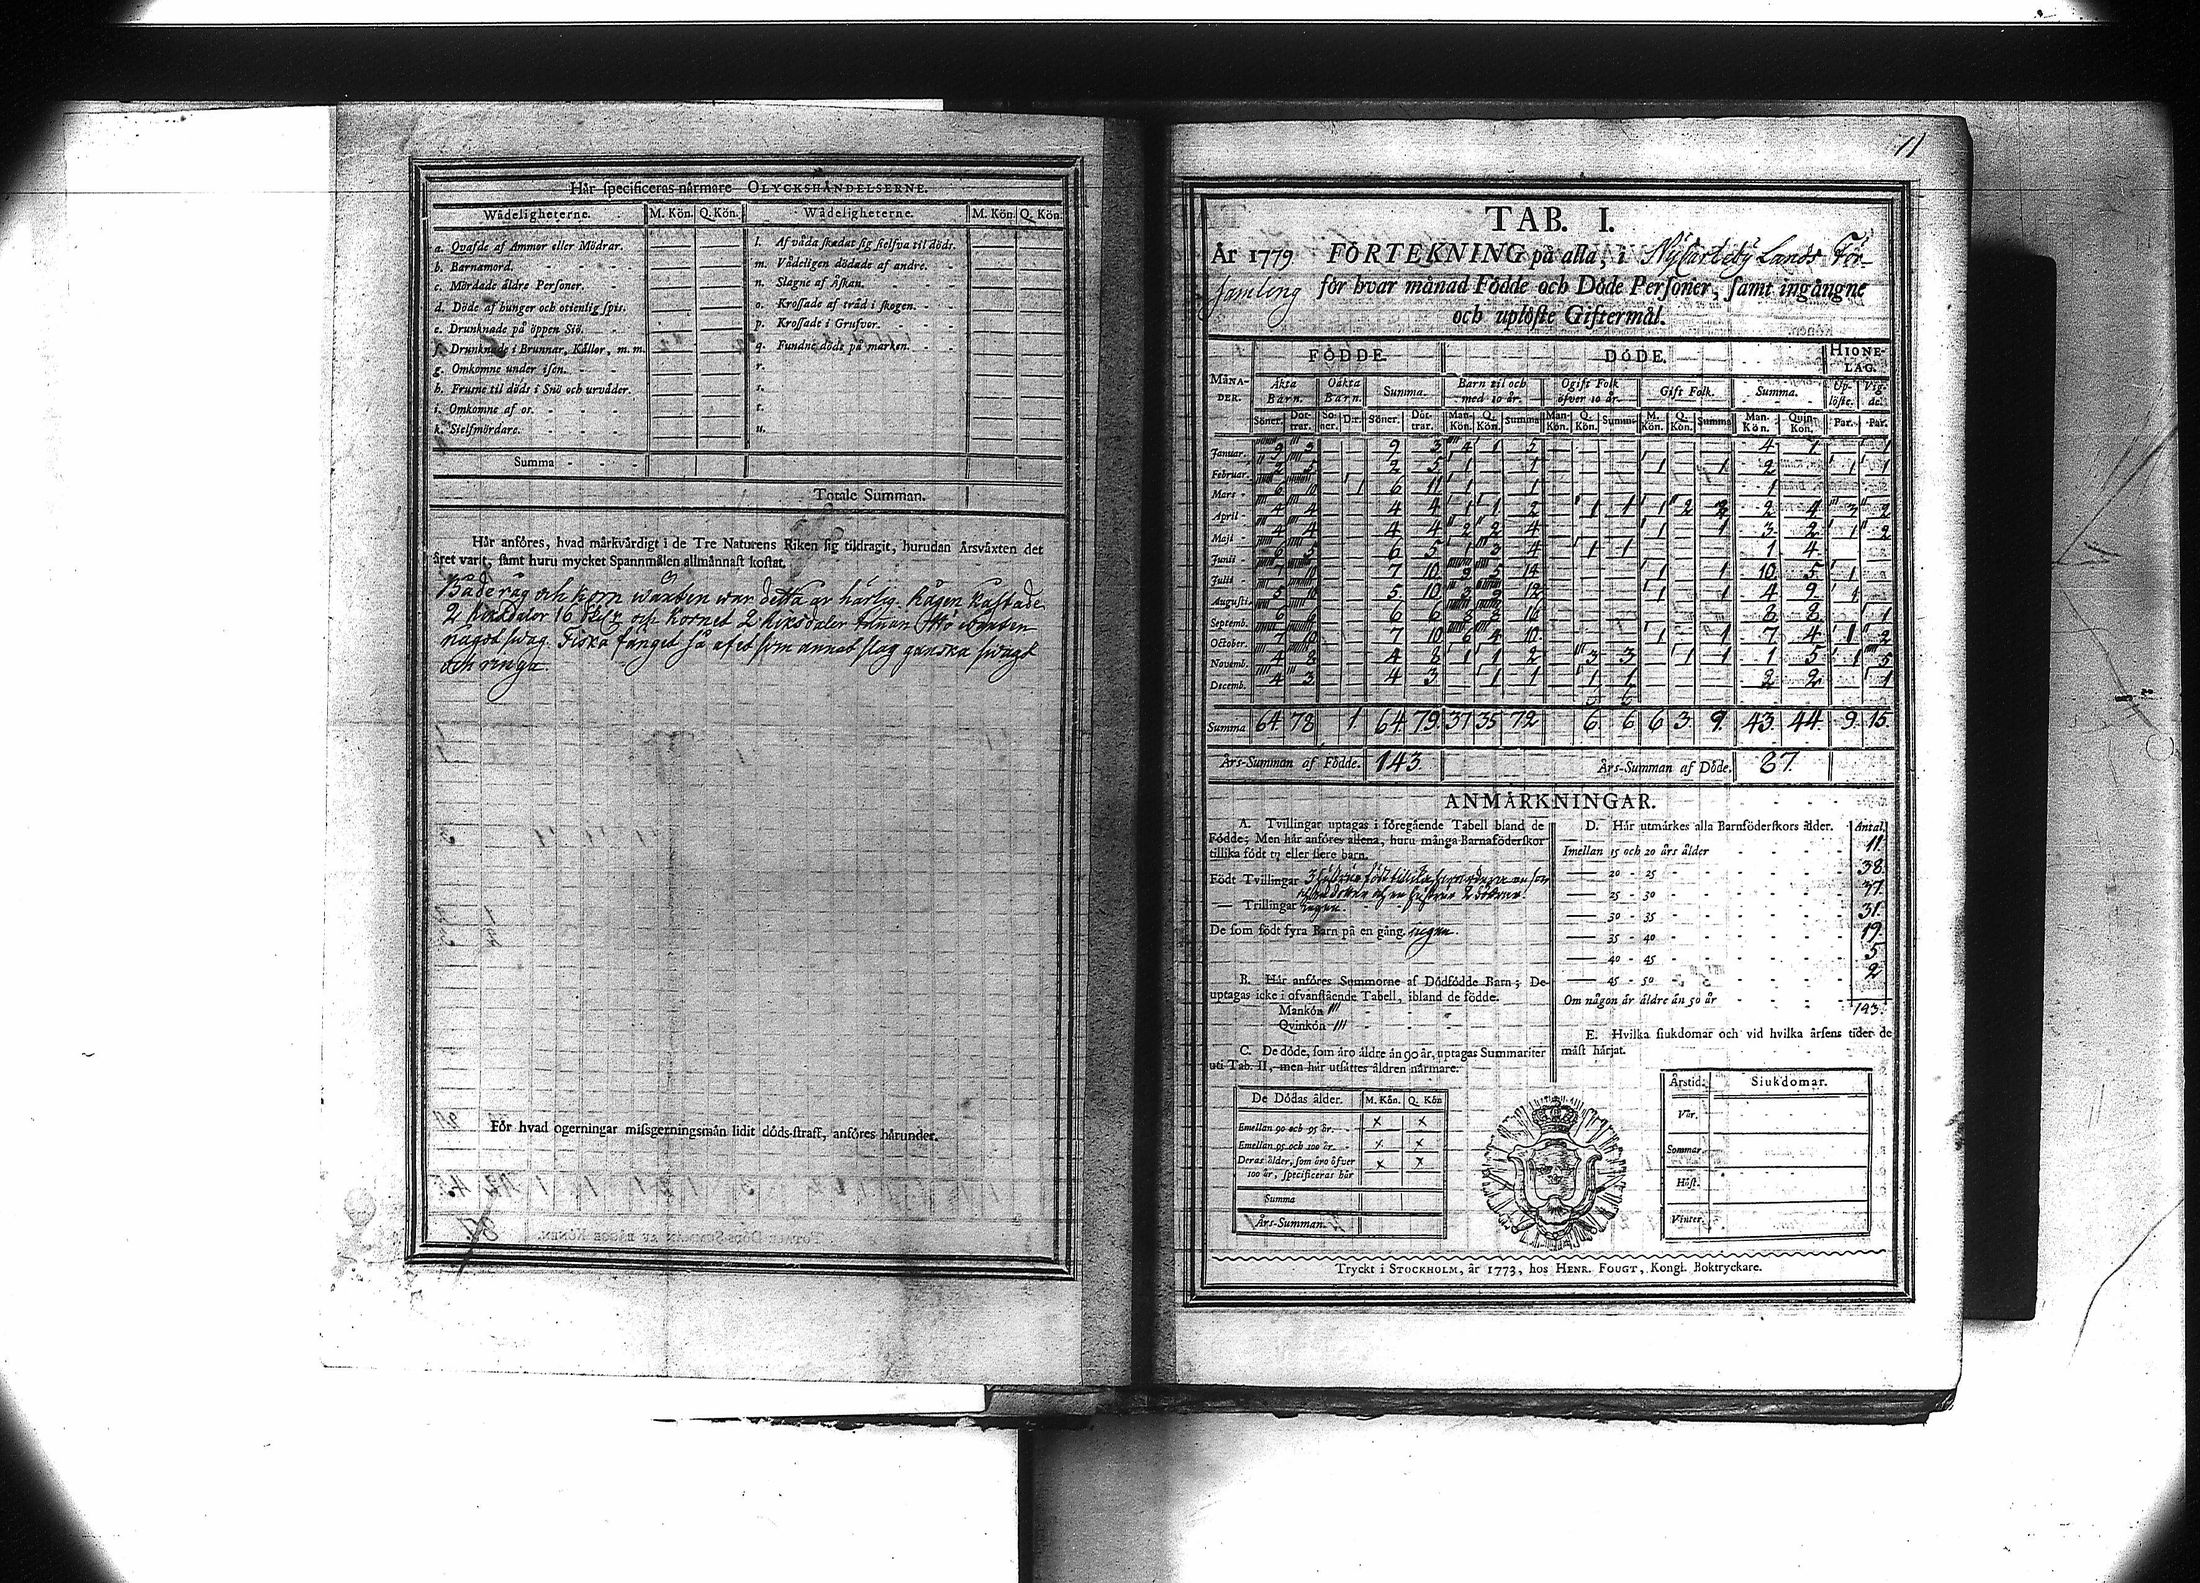 Här specificeras närmare OLYCKSHÄNDELSERNE.
Wådeligheterne. M. Kön. Q. Kön. Wådeligheterne. M. Kön. Q. Kön.
a. Qvafde af Ammor eller Mödrar. l. Af våda skadat sig sielfva til döds.
b. Barnamord. m. Vådeligen dödade af andre.
c. Mördade äldre Personer. n. Slagne af Åskan.
d. Döde af hunger och otienlig spis. o. Krossade af träd i skogen.
e. Drunknade på öppen Siö. p. Krossade i Grufvor.
f. Drunknade i Brunnar, Källor, m. m. q. Fundne döde på marken.
g. Omkomne under isen. r.
h. Frusne til döds i Snö och urväder. s.
i. Omkomne af os. t.
k. Sielfmördare. u.
Summa
Totale Summan.
Här anföres, hvad märkvärdigt i de Tre Naturens Riken sig tildragit, hurudan Årsväxten det
året varit, samt huru mycket Spannmålen allmännast kostat.
Både råg och korn wäxten war detta år härlig. Rågen kostade
2 Riksdaler 16 och Kornet 2 Riksdaler tunnan
något swag. Fiska fänget så af et som annat slag ganska swagt
och ringa.
För hvad ogerningar missgerningsmän lidit döds-straff, anföres härunder.
11
TAB. I.
År 1779 FÖRTEKNING på alla, i NyCarleby Lands För-
samling för hvar månad Födde och Döde Personer, samt ingångne
och uplöste Giftermål.
FÖDDE. DÖDE. HIONE-LAG.
MÅNA-DER. Äkta Barn. Oäkta Barn. Summa. Barn til och med 10 år. Ogift Folk öfver 10 år. Gift Folk. Summa. Up-löste. Vig-de.
Söner. Döt-trar. Sö-ner. Dt. Söner. Döt-trar. Man-Kön. Q. Kön. Summa Man-Kön. Q. Kön. Summa M. Kön. Q. Kön. Summa Man-Kön. Quin-Kön. Par. Par.
Januar. 9 3 9 3 4 1 5 4 1 1
Februar. 2 5 2 5 1 1 1 1 2 1 1
Mars 6 10 1 6 11 1 1 1
April 4 4 4 4 1 1 2 1 1 1 2 3 2 4 3 2
Maji 4 4 4 4 2 2 4 1 1 3 2 1 2
Junii 6 5 6 5 1 3 4 1 1 1 4
Julii 7 10 7 10 9 5 14 1 1 10 5 1
Augusti. 5 10 5 10 3 9 12 1 1 4 9 1
Septemb. 6 6 6 6 8 8 16 8 8 1
October. 7 10 7 10 6 4 10 1 1 7 4 1 2
Novemb. 4 8 4 8 1 1 2 3 3 1 1 1 5 1 5
Decemb. 4 3 4 3 1 1 1 1 2 2 1
Summa 64. 78 1. 64. 79. 37 35 72 6 6 6 3. 9. 43. 44. 9. 15.
Års-Summan af Födde. 143. Års-Summan af Döde. 87.
ANMÄRKNINGAR.
A. Tvillingar uptagas i föregående Tabell bland de
Födde; Men här anföres allena, huru många Barnaföderskor
tillika födt tu eller flere barn.
Födt Tvillingar 3 hustrur födt tillika
— Trillingar ingen
De som födt fyra Barn på en gång. ingen.
B. Här anföres Summorne af Dödfödde Barn; De
uptagas icke i ofvanstående Tabell, ibland de födde.
Mankön III
Qvinkön III
C. De döde, som äro äldre än 90 år, uptagas Summariter
uti Tab. II, men här utsättes åldren närmare.
De Dödas ålder. M. Kön. Q. Kön
Emellan 90 och 95 år. x x
Emellan 95 och 100 år. x x
Deras ålder, som äro öfver x x
100 år, specificeras här
Summa
Års-Summan.
D. Här utmärkes alla Barnföderskors ålder. Antal.
Imellan 15 och 20 års ålder 11.
— 20 - 25 38.
— 25 - 30 37.
— 30 - 35 31.
— 35 - 40 19.
— 40 - 45 5
— 45 - 50 2
Om någon är äldre än 50 år
143.
E. Hvilka siukdomar och vid hvilka årsens tider de
mäst härjat.
Årstid. Siukdomar.
Vår.
Sommar.
Höst.
Vinter.
Tryckt i STOCKHOLM, år 1773, hos HENR. FOUGT, Kongl. Boktryckare.